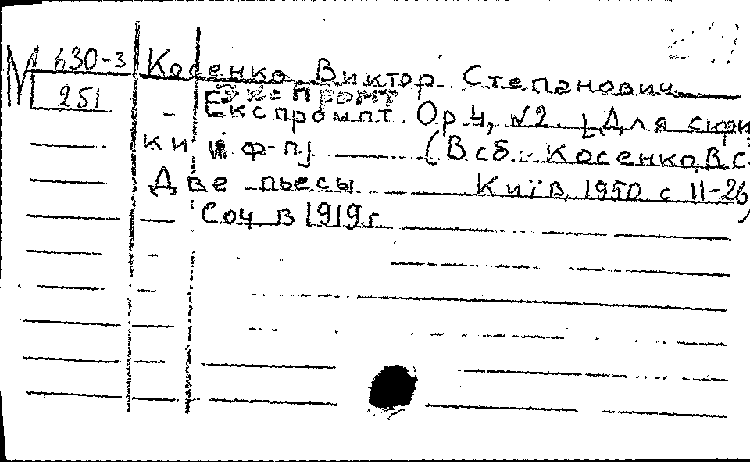 М 630-3 Косенко Виктор Степанович
251 Экспромт
Експромпт. Op 4, №2. [Для скрип
ки и ф-п] (В сб.: Косенко, В.С.
Две пьесы Київ, 1950 с 11-26)
Соч в 1919г